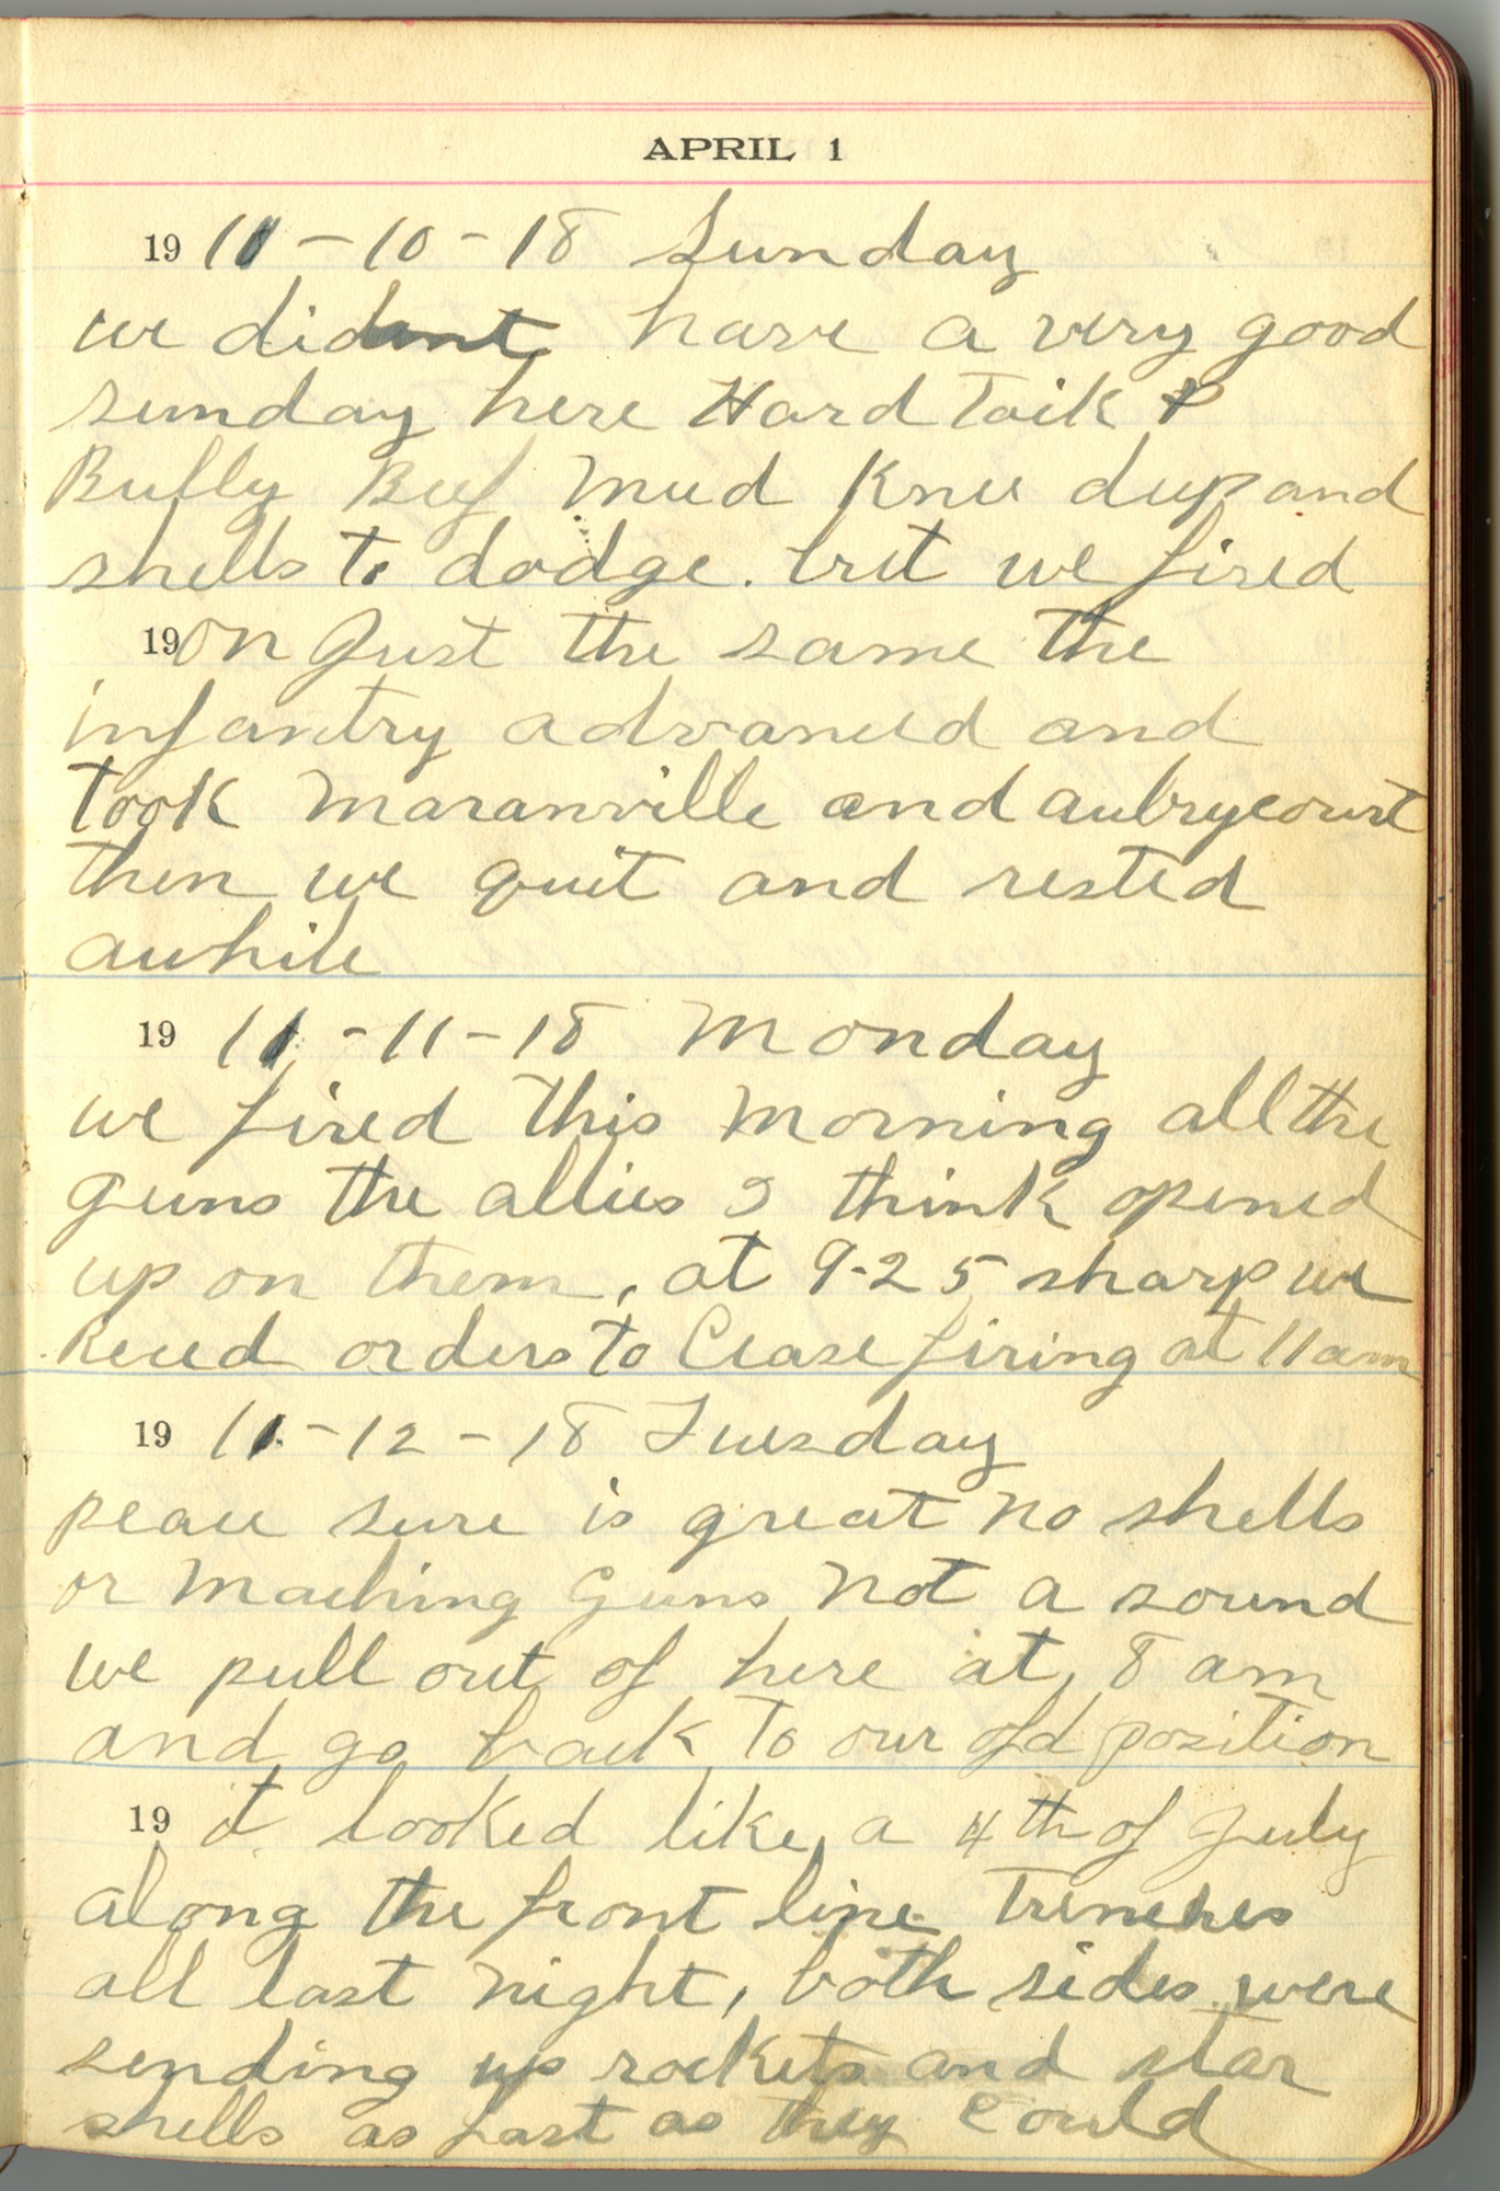 APRIL 1
19 11-10-18 Sunday
we dident have a very good
sunday here Hard Taik &
Bully Beef mud Knee deep and
shells to dodge. but we fired
19 on Just the same the
infantry advanced and
took maranville and aubrycourt
then we quit and rested
awhile
19 11-11-18 Monday
we fired this morning all the
Guns the allies I think opened
up on them, at 9-25 sharp we
Recud orders to Cease firing at 11 am
19 11-12-18 Tuesday
peace sure is great no shells
or Maching Guns not a sound
we pull out of here at 8 am
and go back to our old position
19 it looked like a 4th of July
along the front line Trenches
all last night, both sides were
sending up rockets and star
shells as fast as they Could